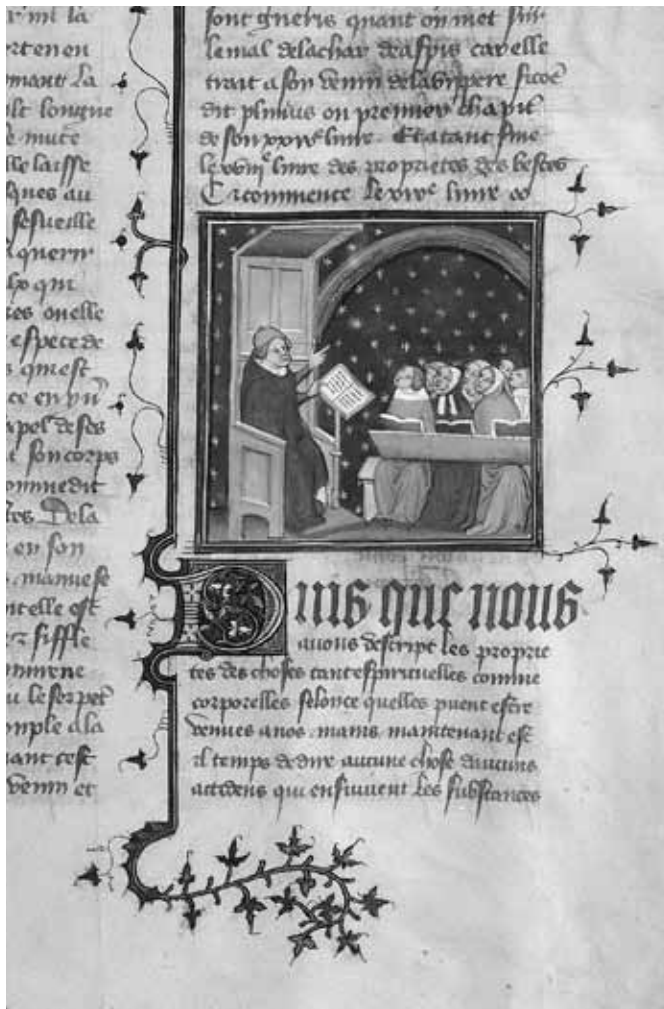 la
mant la
longue
mute
laisse
ques au
sesueille
querir
qui
ou elle
espece de
qui est
ce en
de ses
son corps
comme dit
De la
en son
elle est
siffle
le serpet
a la
cest
venin et
sont gueris quant on met sur
le mal de la char daspis car elle
trait a son venin de la vipere sicoe
dit plinius ou premier chapit
de son xxixe liure. Et atant fine
le xviiie liure des proprietes des bestes
Ci commence le xixe liure
Puis que nous
auons descript les proprie
tes des choses tant espirituelles comme
corporelles selonce quelles puent estre
venues a nos mains maintenant est
il temps de dire aucune chose daucuns
accidens qui ensuiuent les substances